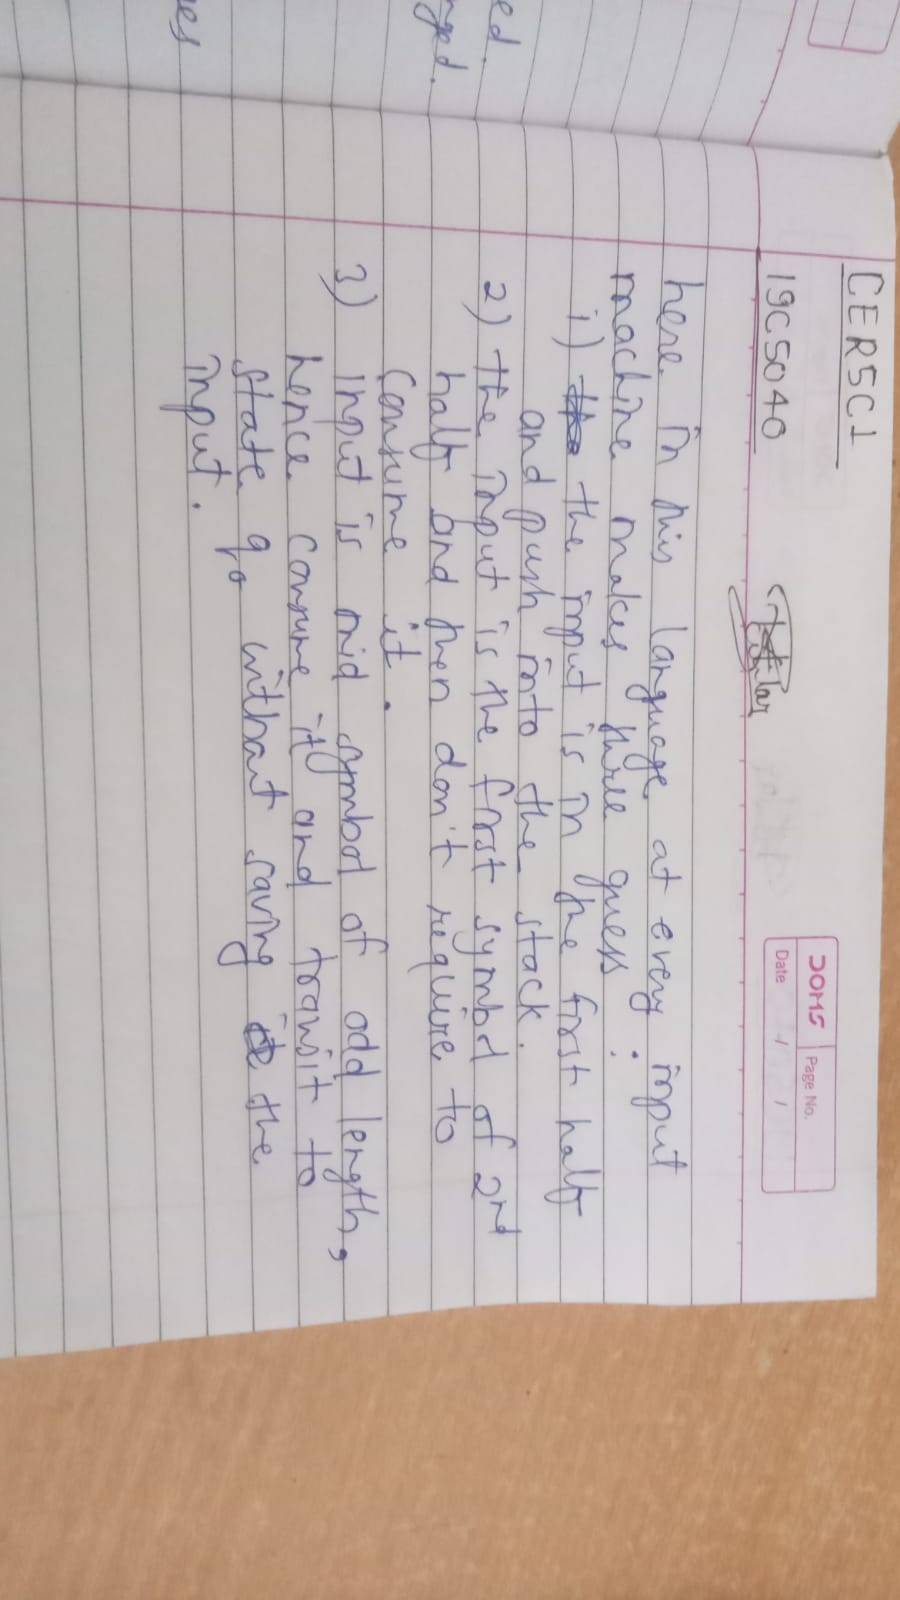 CER5C1
DOMS Page No.
Date / /
19C5040
here in this language at every input
machine makes three guess :
i) the input is in the first half
and push into the stack.
ed.
2) the input is the first symbol of 2nd
nged.
half and then don't require to
consume it.
3) input is mid symbol of odd length,
hence consume it and transit to
state q0 without saving the
input.
es